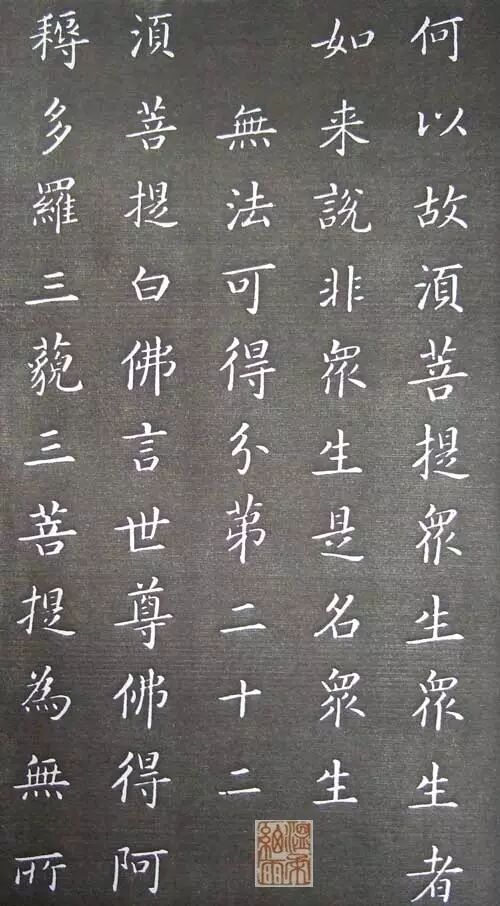 何以故須菩提眾生眾生者
如来說非眾生是名眾生
無法可得分第二十二
須菩提白佛言世尊佛得阿
耨多羅三藐三菩提為無所